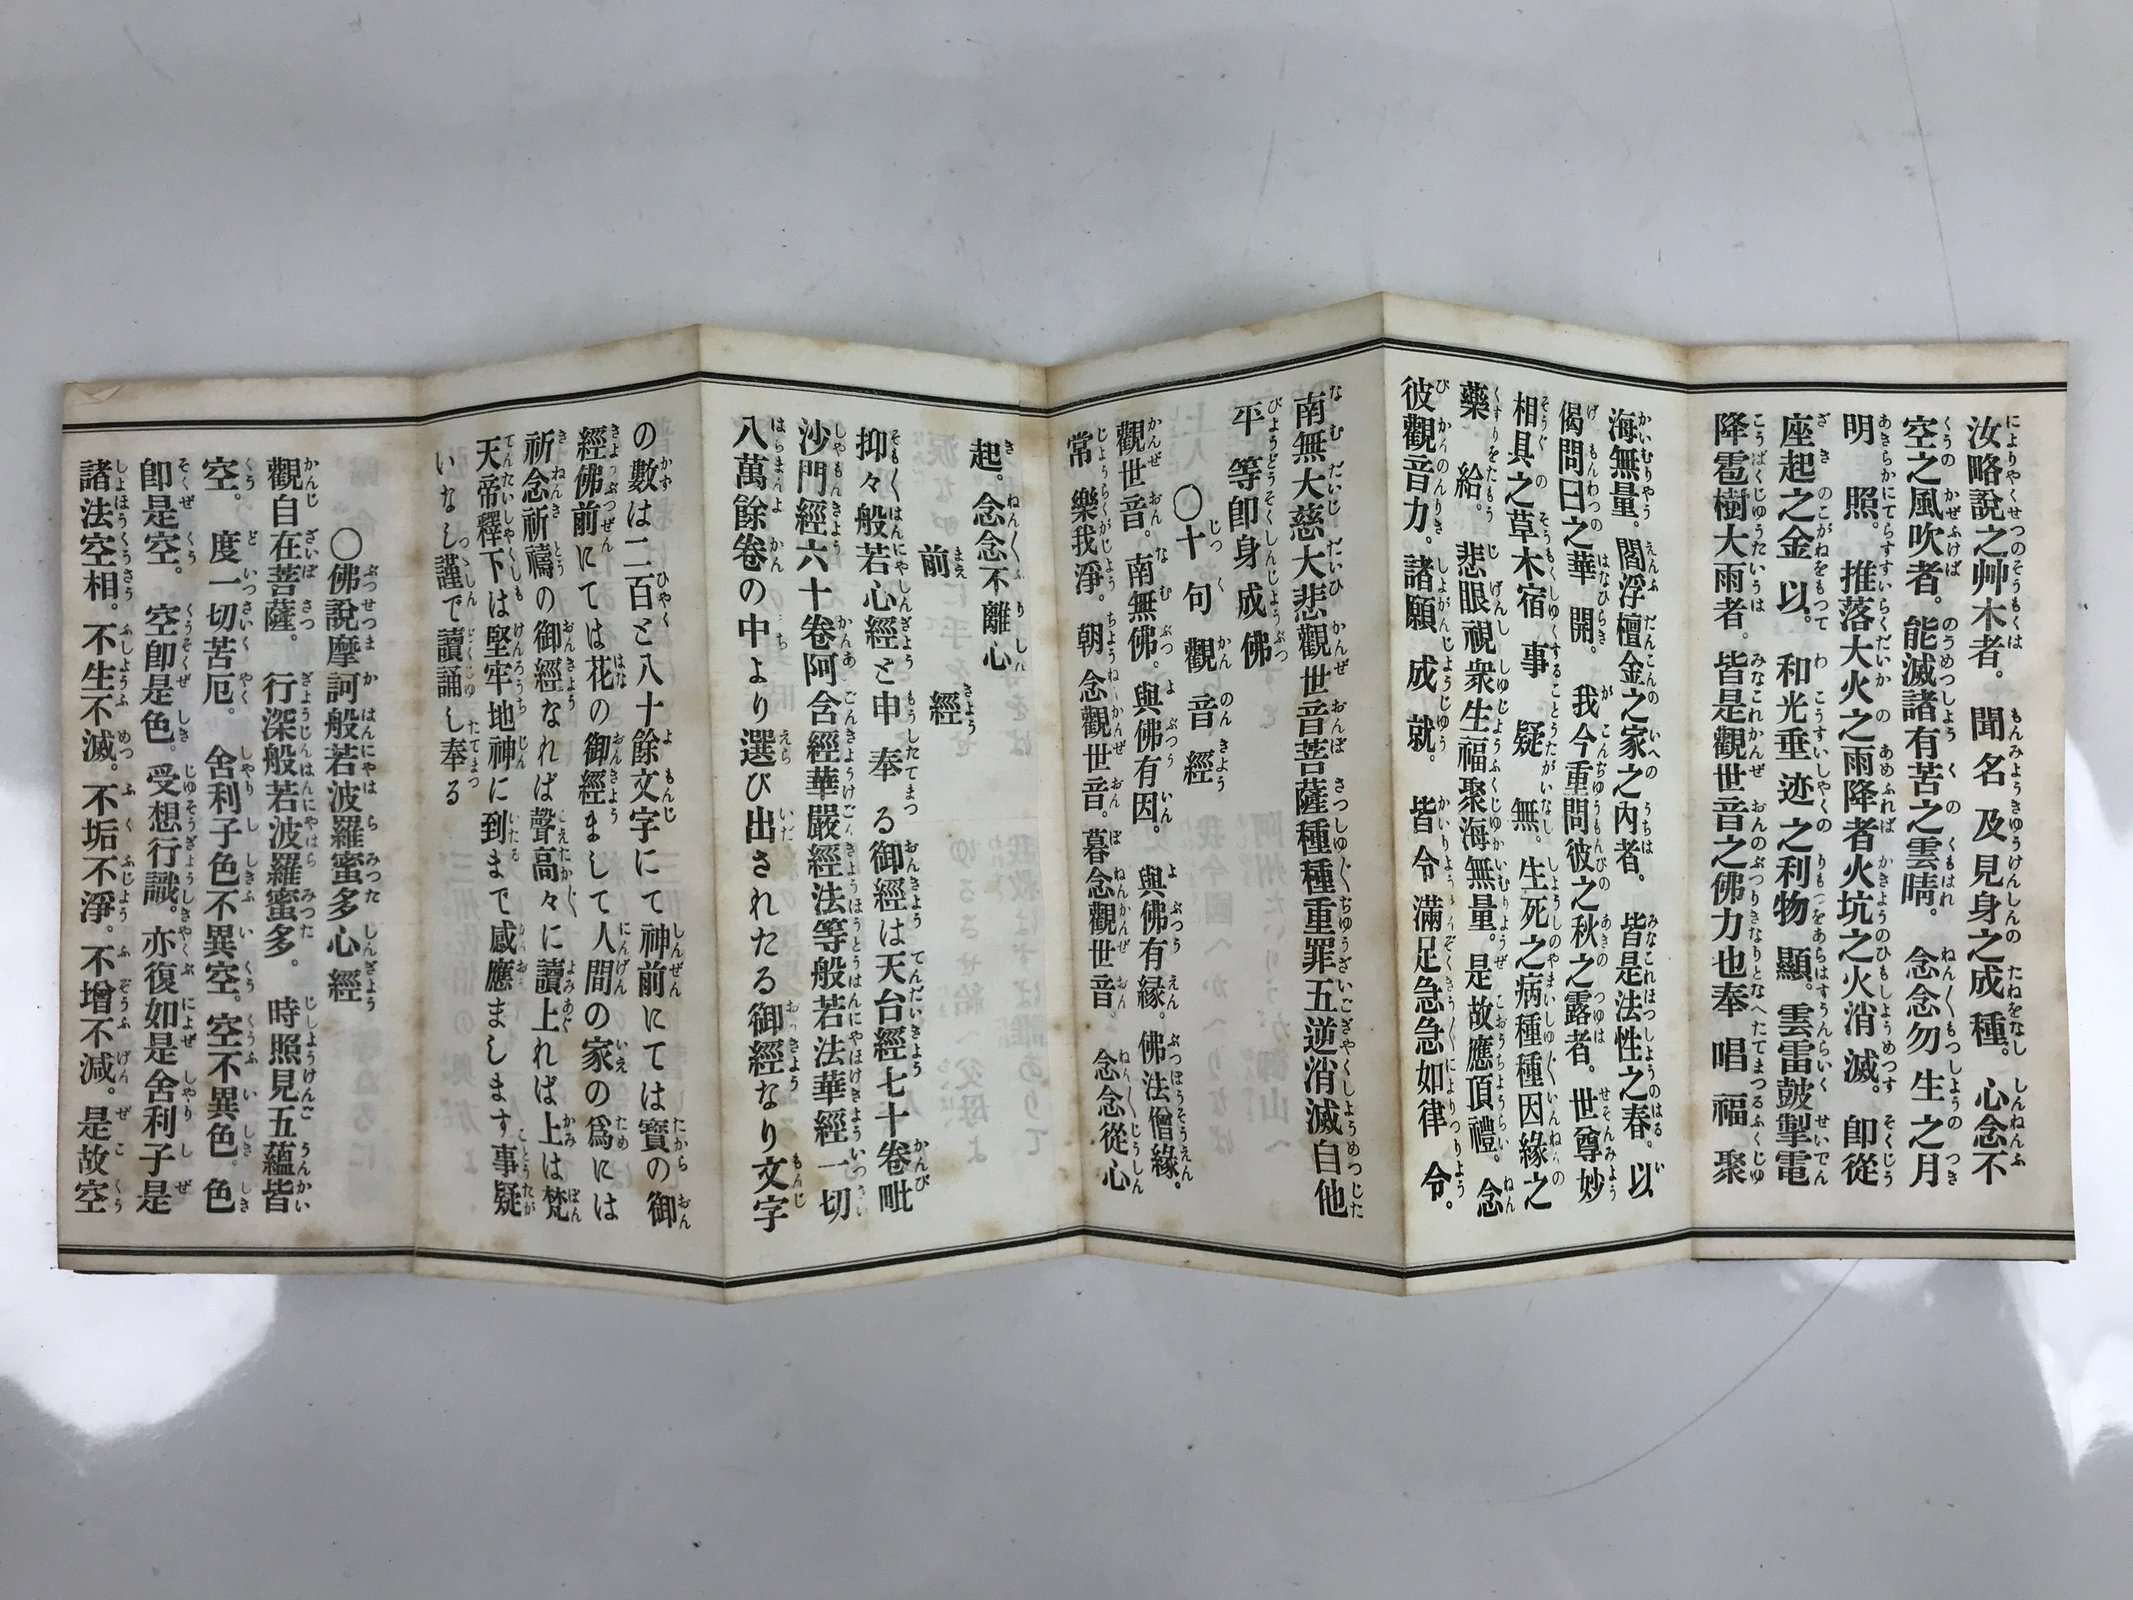 汝略說之艸木者。聞名及見身之成種。心念不
空之風吹者。能滅諸有苦之雲晴。念念勿生之月
明照。推落大火之雨降者火坑之火消滅。卽從
座起之金以。和光垂迹之利物顯。雲雷鼓掣電
降雹樹大雨者。皆是觀世音之佛力也奉唱福聚
海無量。閻浮檀金之家之內者。皆是法性之春。以
偈問曰之華開。我今重問彼之秋之露者。世尊妙
相具之草木宿事疑無。生死之病種種因緣之
藥給。悲眼視衆生福聚海無量。是故應頂禮。念
彼觀音力。諸願成就。皆令滿足急急如律令。
南無大慈大悲觀世音菩薩種種重罪五逆消滅自他
平等卽身成佛
〇十句觀音經
觀世音。南無佛。與佛有因。與佛有縁。佛法僧緣。
常樂我淨。朝念觀世音。暮念觀世音。念念從心
起。念念不離心
前經
抑々般若心經と申奉る御經は天台經七十卷毗
沙門經六十卷阿含經華嚴經法等般若法華經一切
八萬餘卷の中より選び出されたる御經なり文字
の數は二百と八十餘文字にて神前にては寶の御
經佛前にては花の御經まして人間の家の爲には
祈念祈禱の御經なれば聲高々に讀上れば上は梵
天帝釋下は堅牢地神に到まで感應まします事疑
いなし謹で讀誦し奉る
〇佛說摩訶般若波羅蜜多心經
觀自在菩薩。行深般若波羅蜜多。時照見五蘊皆
空。度一切苦厄。舍利子色不異空。空不異色。色
卽是空。空卽是色。受想行識。亦復如是舍利子是
諸法空相。不生不滅。不垢不淨。不增不減。是故空